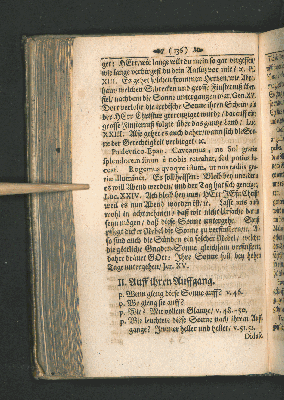 (136)
get: HErr, wie lange wilt du mein so gar vergessen,
wie lange verbirgest du dein Antlitz vor mir? x. Ps.
XIII. Es gehet solchen frommen Hertzen, wie Abra-
ham, welchen Schrecken und grosse Finsterniß überf-
fiel, nachdem die Sonne untergangen war. Gen. XV.
Dort verlohr die irrdische Sonne ihren Schein, als
der HErr Christus gecreutziget wurde / darauff ein
grosse Finsterniß folgte über das gantze Land: Luc.
XXIII. Also gehet es auch daher, wann sich die Son-
ne der Gerechtigkeit verbirget. x.
Caveamus, ne Sol gratiæ
splendorem suum à nobis retrahat, sed potius lu-
ceat. Rogemus quoque illum, ut nos radiis gra-
tiæ illuminet. Es soll heissen: Bleib bey uns, denn
es will Abend werden, und der Tag hat sich geneiget,
Luc. XXIV. Ach bleib bey uns, HErr JEsu Christ,
weil es nun Abend worden ist. x. Last uns auch
wohl in acht nehmen, daß wir nicht Ursache daran
seyn mögen, daß diese Sonne untergehe. Sonst
pflegt dicke Nebel die Sonne zu verfinstern. Al-
so sind auch die Sünden ein solcher Nebel, welche
die göttliche Gnaden-Sonne gleichsam verdunckeln,
daher dräuet GOtt: Ihre Sonne soll bey hohem
Tage untergehen, Jer. XV.
II. Auff ihren Auffgang.
p. Wenn gieng diese Sonne auff? v. 46.
p. Wo gieng sie auff?
p. Wie? Mit vollem Glantze, v. 48.-50.
p. Wie leuchtete diese Sonne nach ihrem Auff-
gange? Immer heller und heller, v. 51. 52.